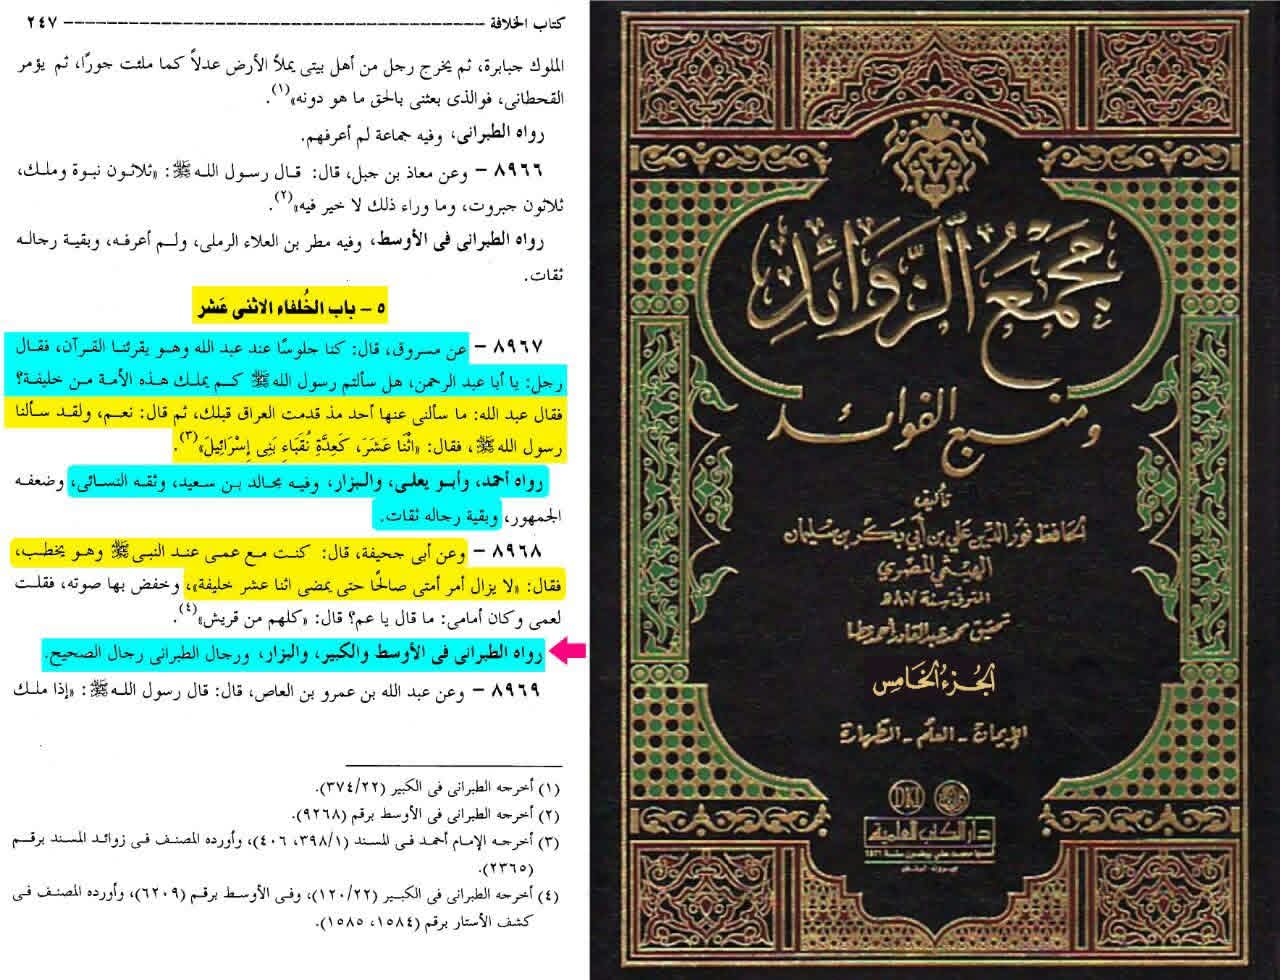 كتاب الخلافة ـــــــــــــــــــــــــــــــــــــــــــــــــ ٢٤٧
الملوك جبابرة، ثم يخرج رجل من أهل بيتى يملأ الأرض عدلاً كما ملئت جورًا، ثم يؤمر
القحطانى، فوالذى بعثنى بالحق ما هو دونه»(١).
رواه الطبرانى، وفيه جماعة لم أعرفهم.
٨٩٦٦ – وعن معاذ بن جبل، قال: قال رسول الله ﷺ: «ثلاثون نبوة وملك،
ثلاثون جبروت، وما وراء ذلك لا خير فيه»(٢).
رواه الطبرانى فى الأوسط، وفيه مطر بن العلاء الرملى، ولم أعرفه، وبقية رجاله
ثقات.
٥ – باب الخُلفاء الاثنى عَشر
٨٩٦٧ – عن مسروق، قال: كنا جلوسًا عند عبد الله وهو يقرئنا القرآن، فقال
رجل: يا أبا عبد الرحمن، هل سألتم رسول الله ﷺ كم يملك هذه الأمة من خليفة؟
فقال عبد الله: ما سألنى عنها أحد مذ قدمت العراق قبلك، ثم قال: نعم، ولقد سألنا
رسول الله ﷺ، فقال: «اثْنَا عَشَرَ، كَعِدَّةِ نُقَبَاءِ بَنِى إِسْرَائِيلَ»(٣).
رواه أحمد، وأبو يعلى، والبزار، وفيه مجالد بن سعيد، وثقه النسائى، وضعفه
الجمهور، وبقية رجاله ثقات.
٨٩٦٨ – وعن أبى جحيفة، قال: كنت مع عمى عند النبى ﷺ وهو يخطب،
فقال: «لا يزال أمر أمتى صالحًا حتى يمضى اثنا عشر خليفة»، وخفض بها صوته، فقلت
لعمى وكان أمامى: ما قال يا عم؟ قال: «كلهم من قريش»(٤).
رواه الطبرانى فى الأوسط والكبير، والبزار، ورجال الطبرانى رجال الصحيح.
٨٩٦٩ – وعن عبد الله بن عمرو بن العاص، قال: قال رسول الله ﷺ: «إذا ملك
(١) أخرجه الطبرانى فى الكبير (٣٧٤/٢٢).
(٢) أخرجه الطبرانى فى الأوسط برقم (٩٢٦٨).
(٣) أخرجه الإمام أحمد فى المسند (٣٩٨/١، ٤٠٦)، وأورده المصنف فى زوائد المسند برقم
(٢٣٦٥).
(٤) أخرجه الطبرانى فى الكبير (١٢٠/٢٢)، وفى الأوسط برقم (٦٢٠٩)، وأورده المصنف فى
كشف الأستار برقم (١٥٨٤، ١٥٨٥).
مَجْمَعُ الزَّوَائِدِ
ومنبع الفوائد
تأليف
الحافظ نور الدين علي بن أبي بكر بن سليمان
الهيثمي المصري
المتوفى سنة ٨٠٧هـ
تحقيق محمد عبد القادر أحمد عطا
الجزء الخامس
الإيمان - العلم - الطهارة
DKI
دار الكتب العلمية